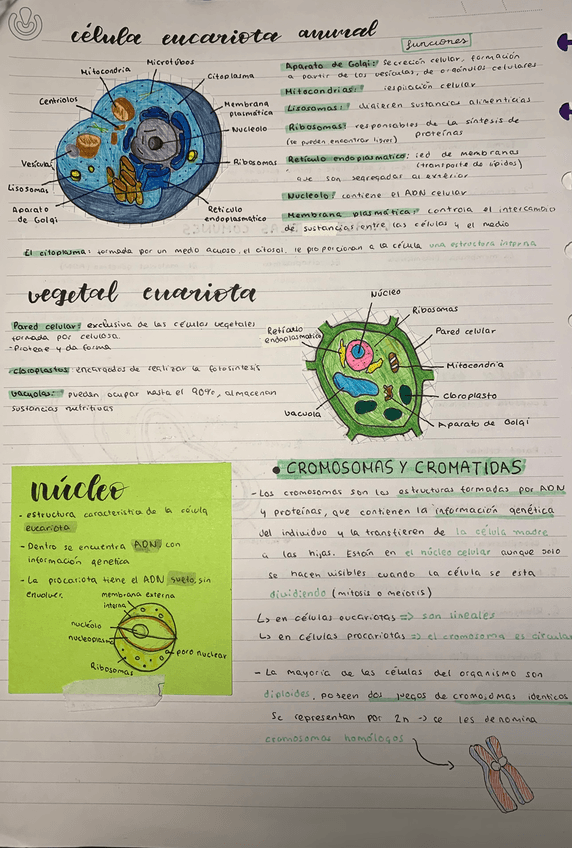 célula eucariota animal
funciones
Mitocondria
Microtúbos
Citoplasma
Centriolos
Membrana
plasmática
Nucleolo
Vesícula
Ribosomas
Lisosomas
Aparato
de Golgi
Retículo
endoplasmático
Aparato de Golgi: secreción celular, formación
a partir de las vesículas, de orgánulos celulares
Mitocondrias: respiración celular
Lisosomas: digieren sustancias alimenticias
Ribosomas: responsables de la síntesis de
(se pueden encontrar libres) proteínas
Retículo endoplasmatico: red de membranas
(transporte de lípidos)
que son segregadas al exterior
Nucleolo: contiene el ADN celular
Membrana plasmática: controla el intercambio
de sustancias entre las células y el medio
El citoplasma: formada por un medio acuoso, el citosol, le proporcionan a la célula una estructura interna
vegetal euariota
Pared celular: exclusiva de las células vegetales
formada por celulosa.
- Protege y da forma
cloroplastos: encargados de realizar la fotosíntesis
vacuolas: pueden ocupar hasta el 90%, almacenan
sustancias nutritivas
Núcleo
Ribosomas
Retículo
endoplasmático
Pared celular
Mitocondria
cloroplasto
Vacuola
Aparato de Golgi
núcleo
- estructura característica de la célula
eucariota
- Dentro se encuentra ADN con
información genética
- La procariota tiene el ADN suelto, sin
envolver.
membrana externa
interna
nucléolo
nucleoplasma
poro nuclear
Ribosomas
• CROMOSOMAS Y CROMATIDAS
- Los cromosomas son las estructuras formadas por ADN
y proteínas, que contienen la información genética
del individuo y la transfieren de la célula madre
a las hijas. Están en el núcleo celular aunque solo
se hacen visibles cuando la célula se esta
dividiendo (mitosis o meiosis)
↳ en células eucariotas => son lineales
↳ en células procariotas => el cromosoma es circular
- La mayoría de las células del organismo son
diploides, poseen dos juegos de cromosomas identicos
Se representan por 2n -> se les denomina
cromosomas homólogos